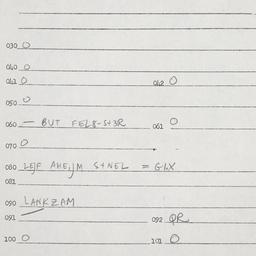 030 O
040 O
041 O 042 O
050 O
060 — BUT FEL8-S+3R 061 O
070 O
080 LEJF AHEIJM S+NEL = G1X
081
090 LANKZAM
091 092 QR
100 O 101 O